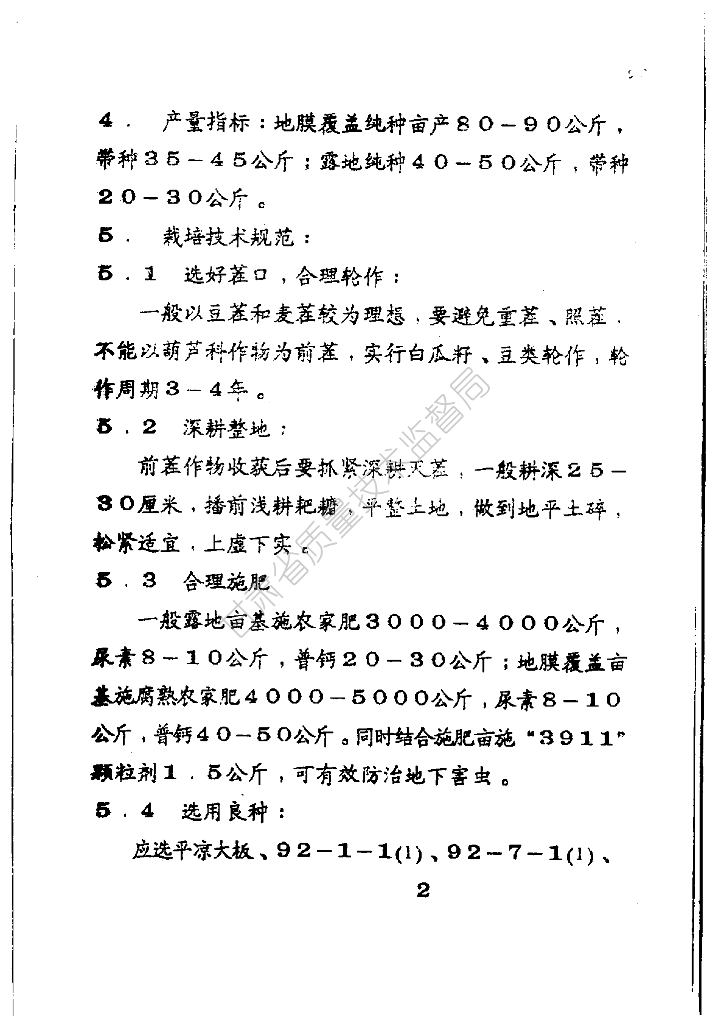 4． 产量指标：地膜覆盖纯种亩产80－90公斤，
带种35－45公斤；露地纯种40－50公斤，带种
20－30公斤。
5． 栽培技术规范：
5．1 选好茬口，合理轮作：
一般以豆茬和麦茬较为理想，要避免重茬、照茬．
不能以葫芦科作物为前茬，实行白瓜籽、豆类轮作，轮
作周期3－4年。
5．2 深耕整地：
前茬作物收获后要抓紧深耕灭茬，一般耕深25－
30厘米，播前浅耕耙糖，平整土地，做到地平土碎，
松紧适宜，上虚下实。
5．3 合理施肥
一般露地亩基施农家肥3000－4000公斤，
尿素8－10公斤，普钙20－30公斤；地膜覆盖亩
基施腐熟农家肥4000－5000公斤，尿素8－10
公斤，普钙40－50公斤。同时结合施肥亩施“3911”
颗粒剂1．5公斤，可有效防治地下害虫。
5．4 选用良种：
应选平凉大板、92－1－1(1)、92－7－1(1)、
2
甘肃省质量技术监督局